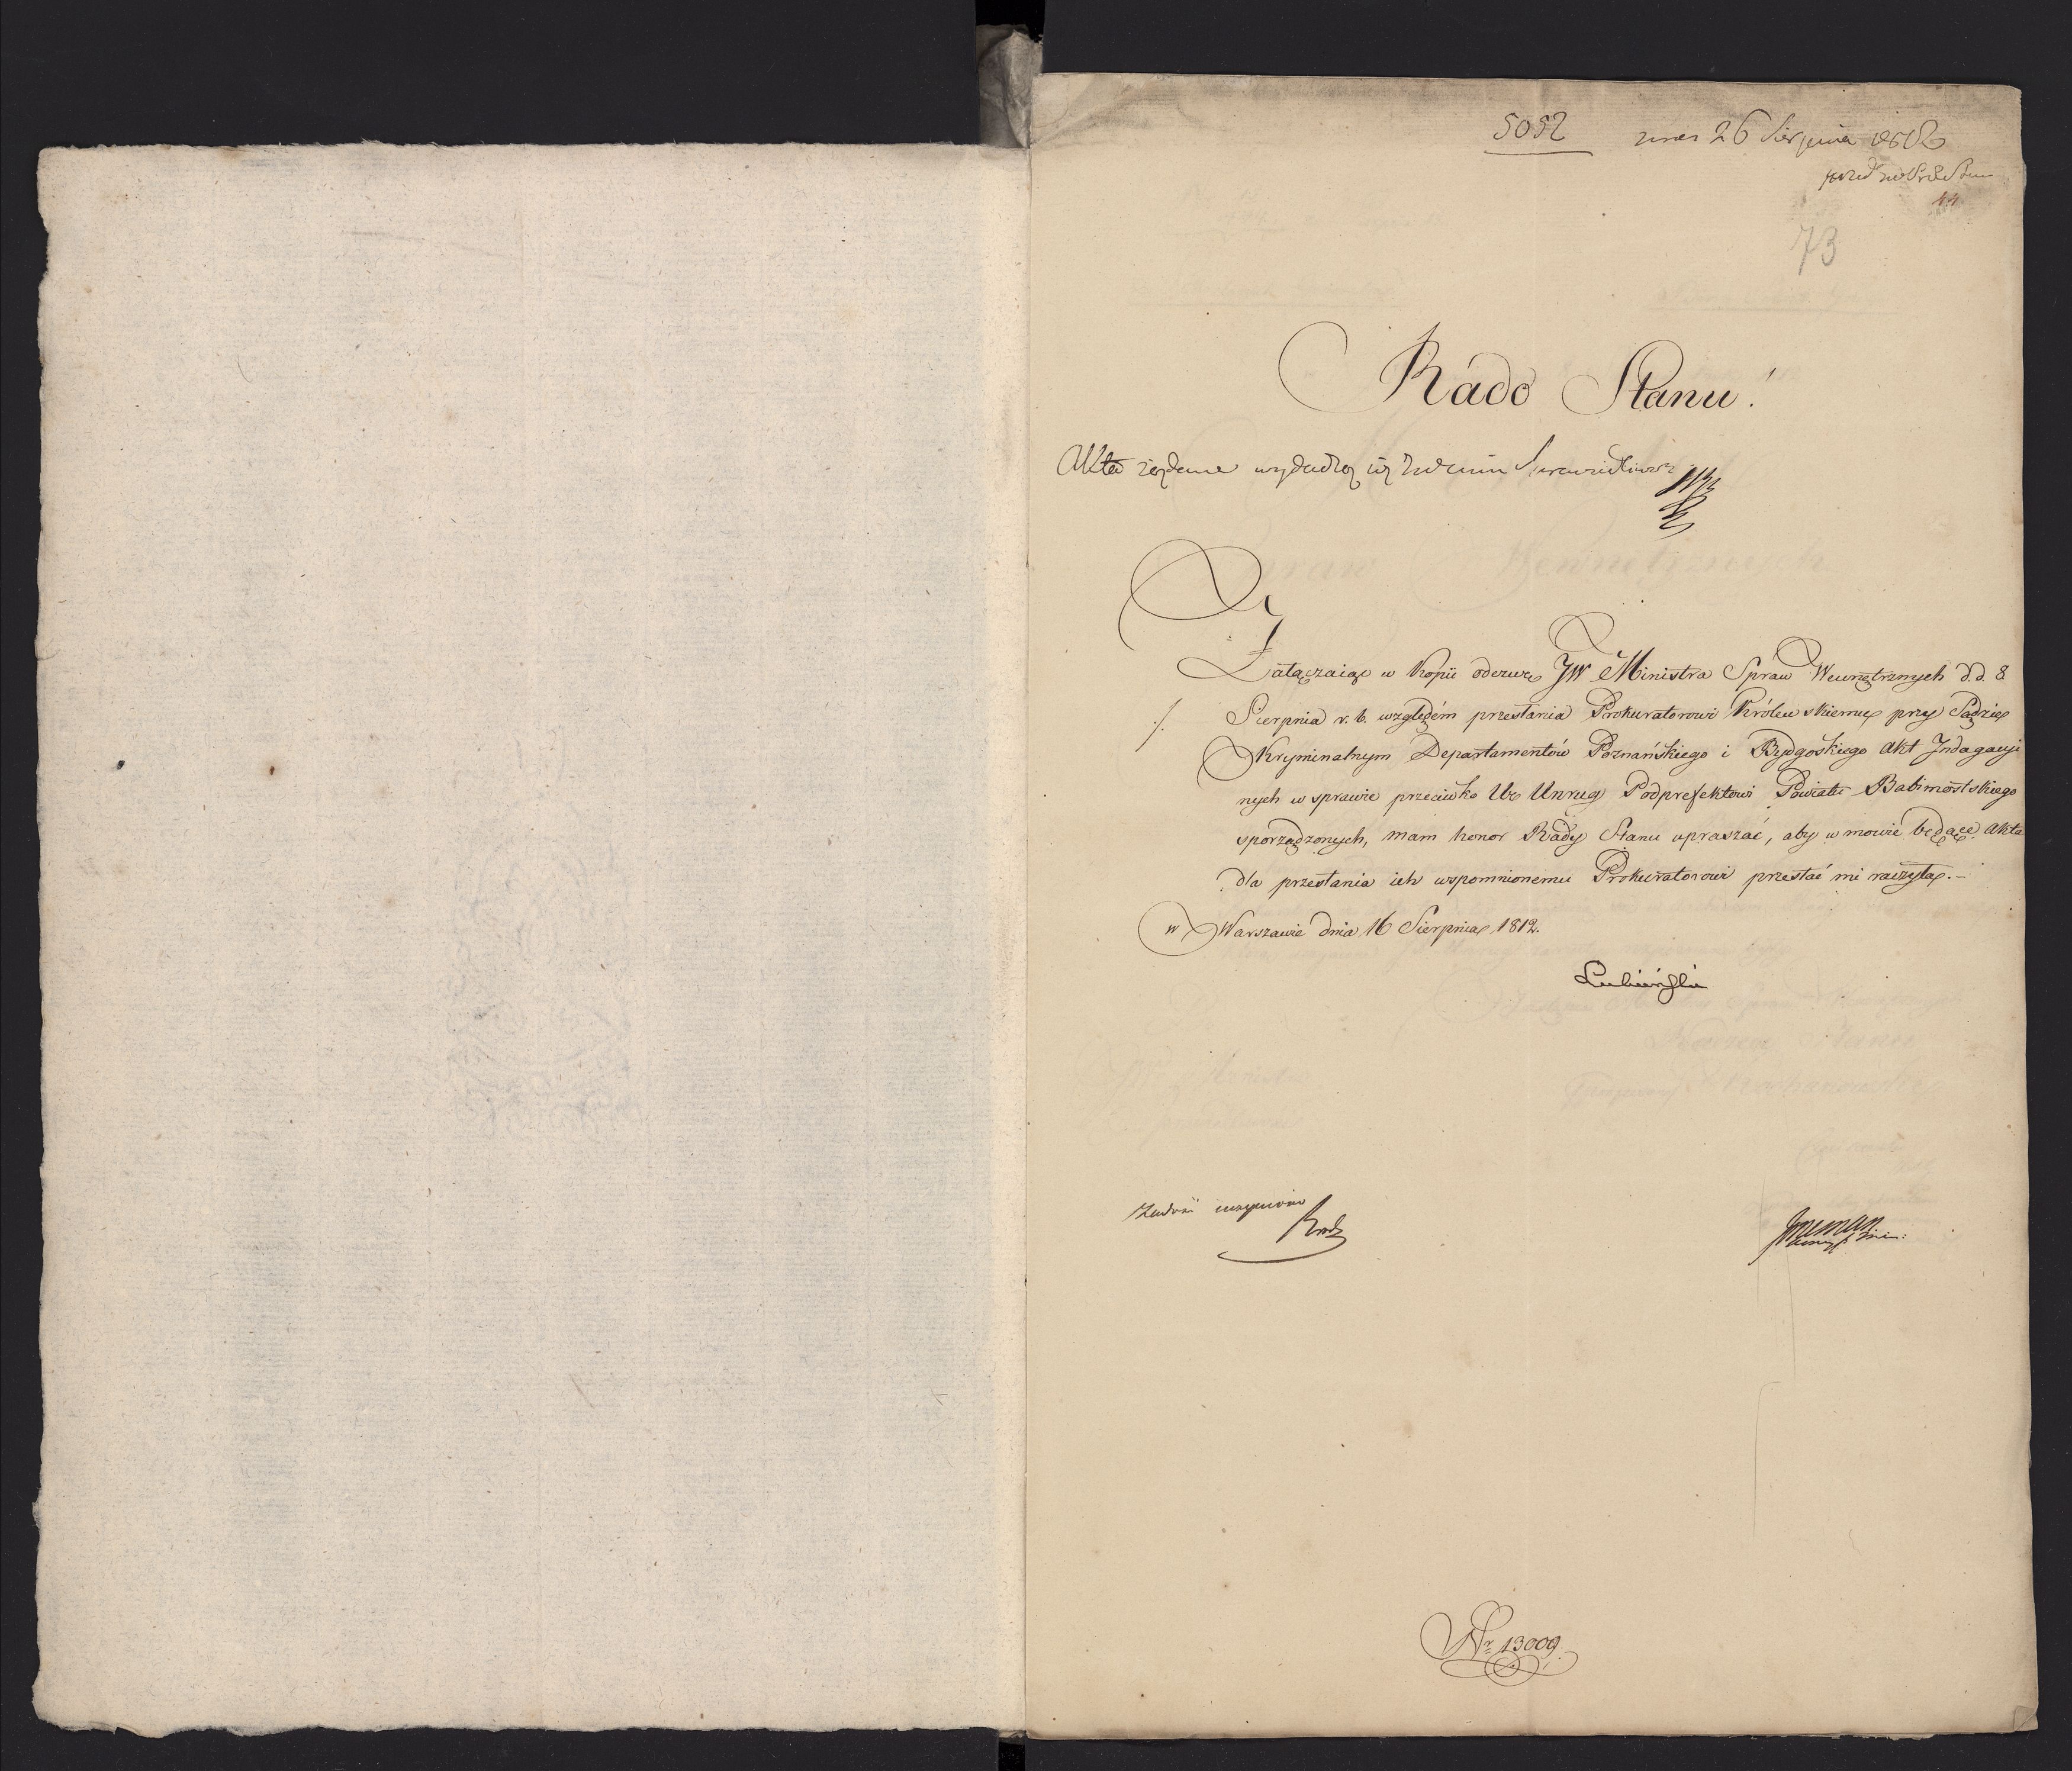 5052 26 Sierpnia 1812
44
73
Rado Stanu!
Akta żądane
Załączaiąc w kopii odezwę JW Ministra Spraw Wewnętrznych d.d. 8
Sierpnia r. b. względem przesłania Prokuratorowi Królewskiemu przy Sądzie
Kryminalnym Departamentów Poznańskiego i Bydgoskiego akt Indagacyi
nych w sprawie przeciwko Ur Unrug Podprefektowi Powiatu Babimostskiego
sporządzonych, mam honor Rady Stanu upraszać, aby w mowie będące akta
dla przesłania ich wspomnionemu Prokuratorowi przesłać mi raczyła.-
w Warszawie dnia 16 Sierpnia 1812.
Lubieński
Nr 13009.